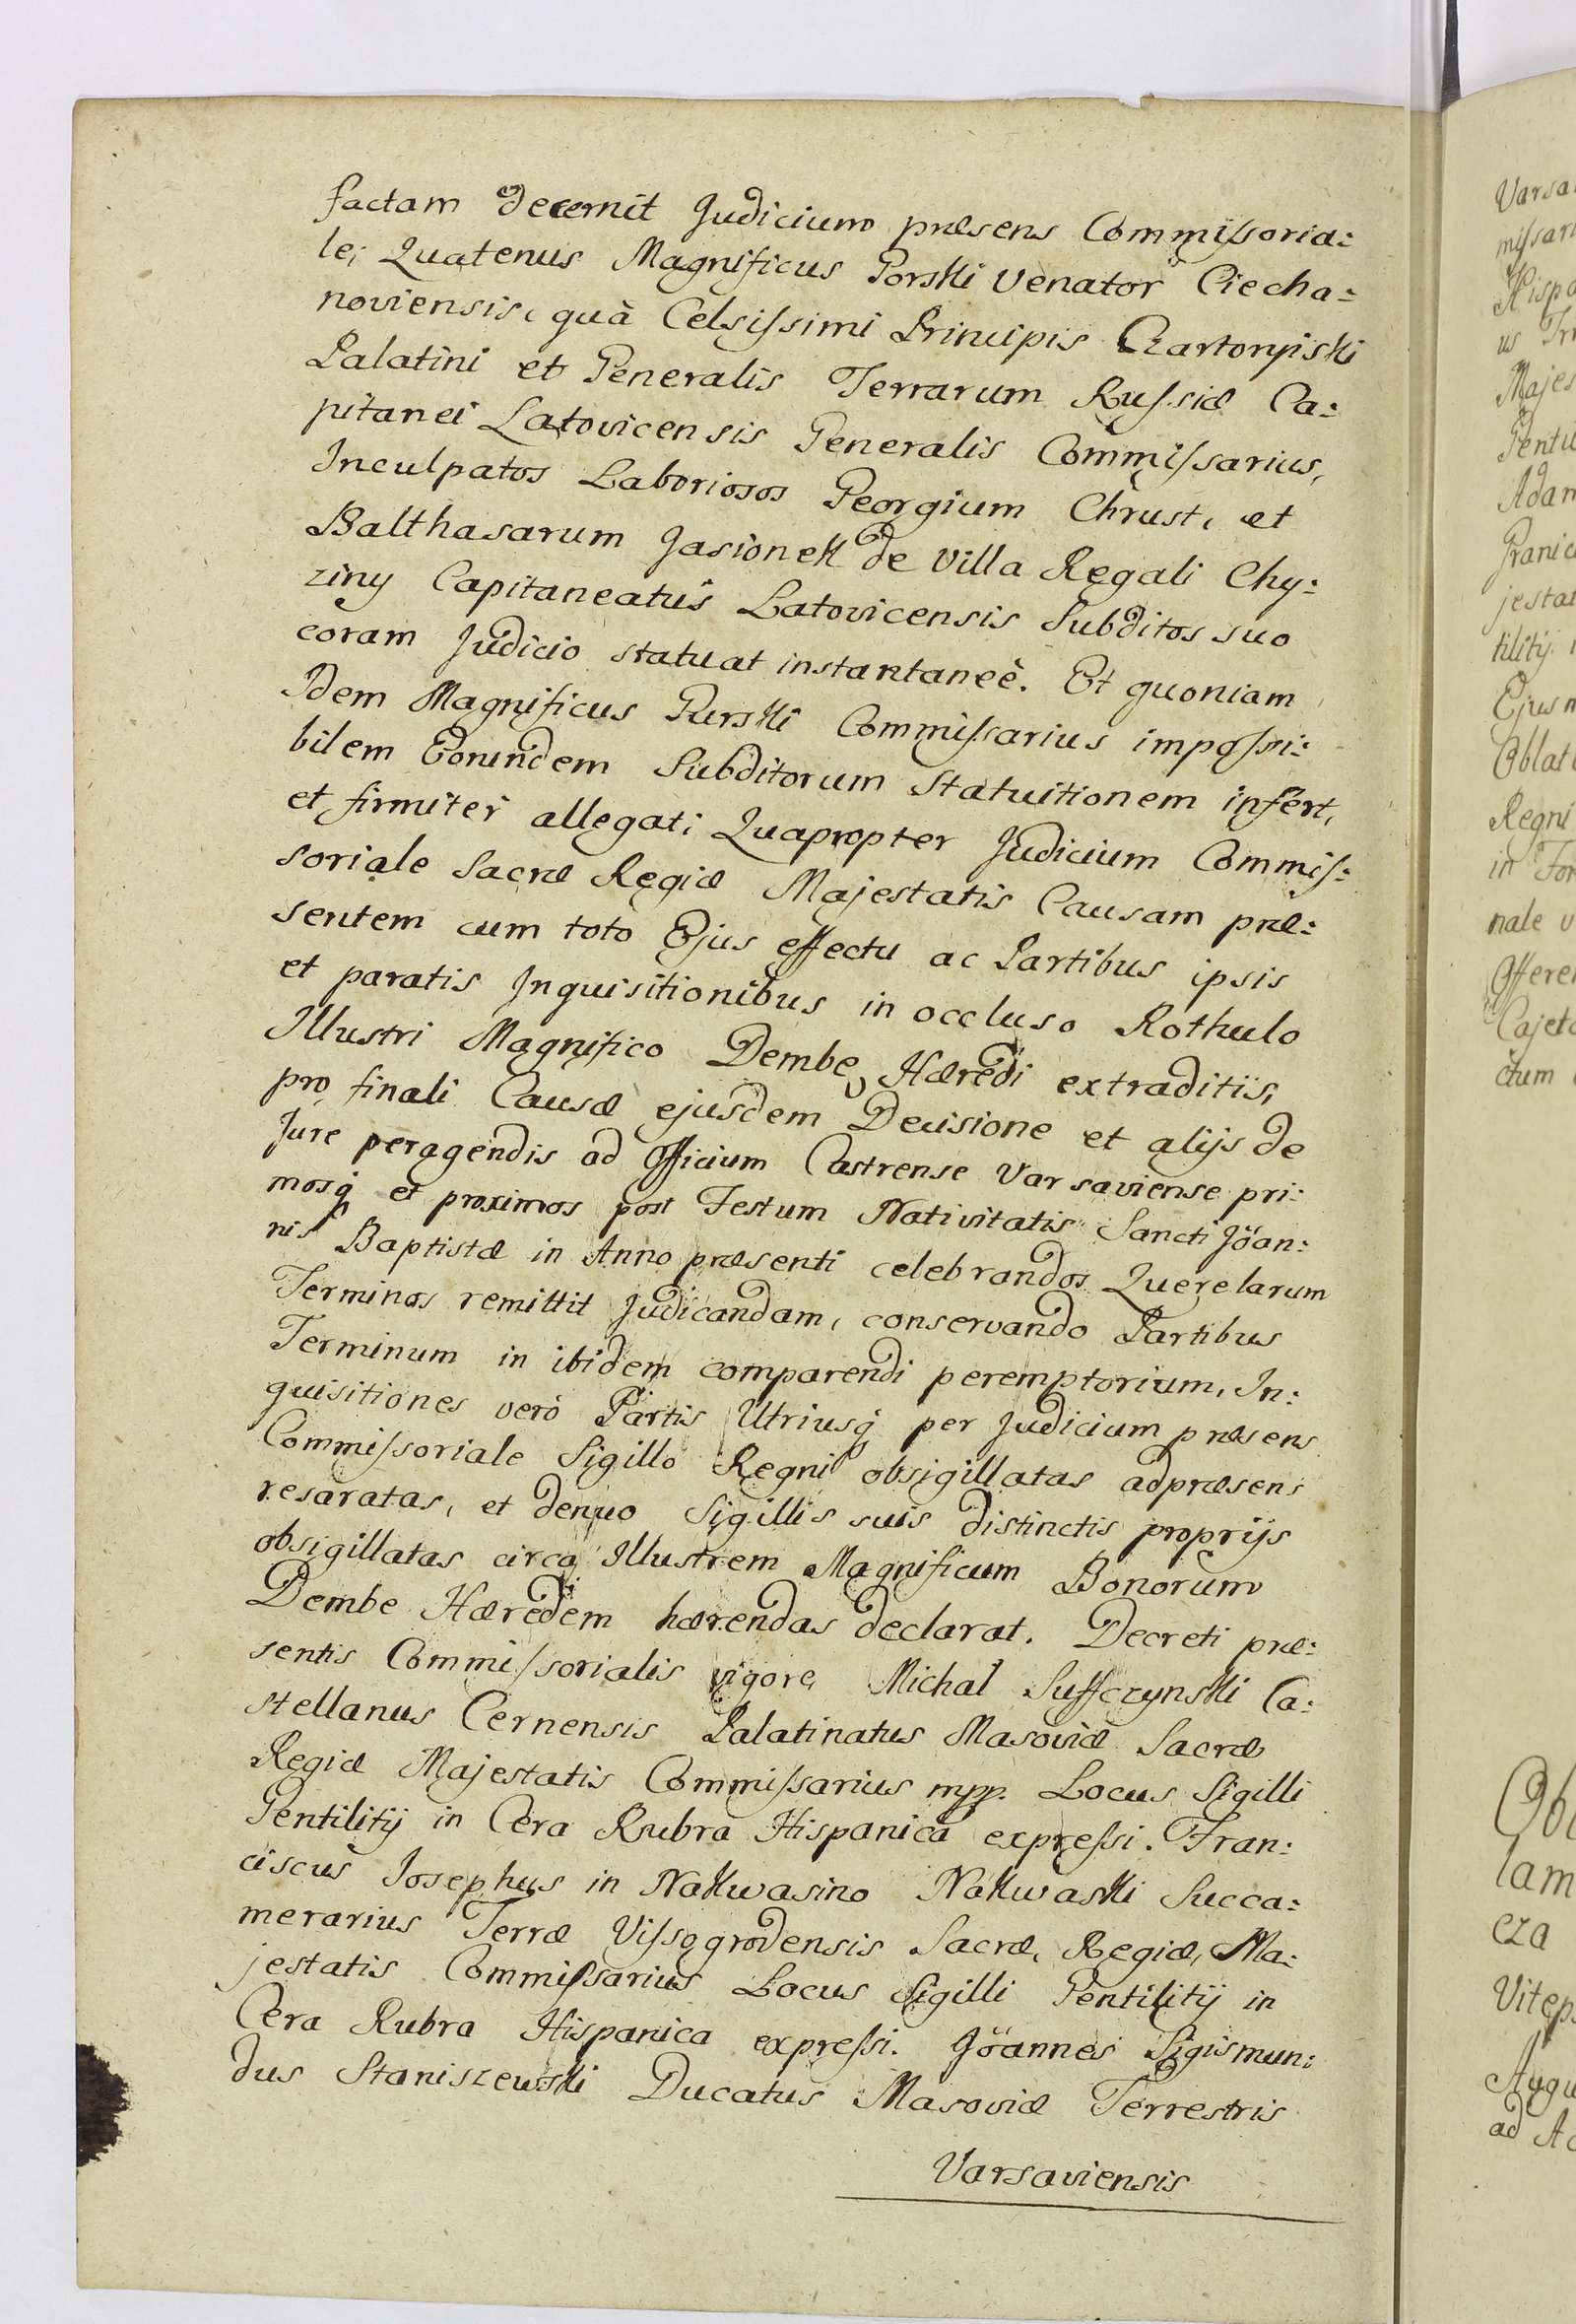 factam decernit Judicium præsens Commissoria:
le; Quatenus Magnificus Gorski Venator Ciecha:
noviensis, quà Celsissimi Principis Czartoryiski
Palatini et Generalis Terrarum Russiæ Ca:
pitanei Latovicensis Generalis Commissarius,
Inculpatos Laboriosos Georgium Chrust, et
Balthasarum Jasionek de Villa Regali Chy:
ziny Capitaneatus Latovicensis Subditos suo
coram Judicio statuat instantaneè. Et quoniam
Idem Magnificus Gurski Commissarius impossi:
bilem Eorundem Subditorum Statuitionem infert,
et firmiter allegat; Quapropter Judicium Commis:
soriale Sacræ Regiæ Majestatis Causam præ:
sentem cum toto Ejus effectu ac Partibus ipsis
et paratis Inquisitionibus in occluso Rothulo
Illustri Magnifico Dembe Hæredi extraditis,
pro finali Causæ ejusdem Decisione et alijs de
Jure peragendis ad Officium Castrense Varsaviense pri:
mosq et proximos post Festum Nativitatis Sancti Jöan:
nis Baptistæ in Anno præsenti celebrandos Querelarum
Terminos remittit Judicandam, conservando Partibus
Terminum in ibidem comparendi peremptorium, In:
quisitiones verò Partis Utriusq per Judicium præsens
Commissoriale Sigillo Regni obsigillatas adpræsens
resaratas, et denuo Sigillis suis distinctis proprijs
obsigillatas circa Illustrem Magnificum Bonorum
Dembe Hæredem hærendas declarat. Decreti præ:
sentis Commissorialis vigore, Michał Suffczynski Ca:
stellanus Cernensis Palatinatus Masoviæ Sacræ
Regiæ Majestatis Commissarius mpp. Locus Sigilli
Gentilitij in Cera Rubra Hispanica expressi. Fran:
ciscus Josephus in Nakwasino Nakwaski Succa:
merarius Terræ Vissogrodensis Sacræ, Regiæ, Ma:
jestatis Commissarius Locus Sigilli Gentilitij in
Cera Rubra Hispanica expressi. Jöannes Sigismun:
dus Staniszewski Ducatus Masoviæ Terrestris
Varsaviensis
Varsa
missari
Hispa
us
Majes
Gentil
Adam
Granic
jestat
tilitij
Ejus
Oblat
Regni
in For
nale
Offeren
Cajet
ctum
Obl
lam
cza
Vitep
Augu
ad Ac